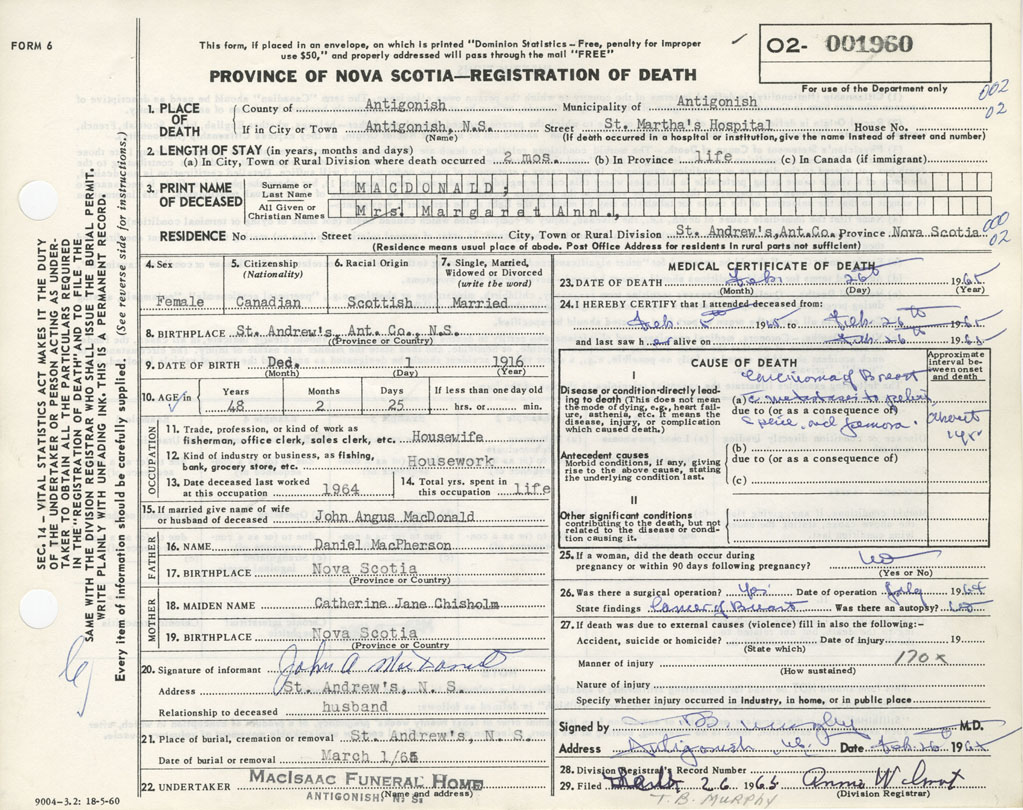 FORM 6
This form, if placed in an envelope, on which is printed "Dominion Statistics – Free, penalty for improper
use $50," and properly addressed will pass through the mail "FREE"
PROVINCE OF NOVA SCOTIA—REGISTRATION OF DEATH
02- 001960
For use of the Department only
002
02
1. PLACE OF DEATH
County of Antigonish Municipality of Antigonish
If in City or Town Antigonish, N.S. Street St. Martha's Hospital House No.
(Name) (If death occurred in a hospital or institution, give the name instead of street and number)
2. LENGTH OF STAY (in years, months and days)
(a) In City, Town or Rural Division where death occurred 2 mos. (b) In Province life (c) In Canada (if immigrant)
3. PRINT NAME OF DECEASED
Surname or Last Name MACDONALD,
All Given or Christian Names Mrs. Margaret Ann.,
000
02
RESIDENCE No Street City, Town or Rural Division St. Andrew's,Ant.Co. Province Nova Scotia
(Residence means usual place of abode. Post Office Address for residents in rural parts not sufficient)
4. Sex
Female
5. Citizenship (Nationality)
Canadian
6. Racial Origin
Scottish
7. Single, Married, Widowed or Divorced (write the word)
Married
8. BIRTHPLACE St. Andrew's, Ant. Co., N.S.
(Province or Country)
9. DATE OF BIRTH Ded. 1 1916
(Month) (Day) (Year)
10. AGE in Years Months Days If less than one day old
48 2 25 hrs. or min.
OCCUPATION
11. Trade, profession, or kind of work as fisherman, office clerk, sales clerk, etc. Housewife
12. Kind of industry or business, as fishing, bank, grocery store, etc. Housework
13. Date deceased last worked at this occupation 1964
14. Total yrs. spent in this occupation life
15. If married give name of wife or husband of deceased John Angus MacDonald
FATHER
16. NAME Daniel MacPherson
17. BIRTHPLACE Nova Scotia
(Province or Country)
MOTHER
18. MAIDEN NAME Catherine Jane Chisholm
19. BIRTHPLACE Nova Scotia
(Province or Country)
20. Signature of informant John A MacDonald
Address St. Andrew's, N. S.
Relationship to deceased husband
21. Place of burial, cremation or removal St. Andrew's, N. S.
Date of burial or removal March 1/65
22. UNDERTAKER MACISAAC FUNERAL HOME
ANTIGONISH, N. S. (Name and address)
MEDICAL CERTIFICATE OF DEATH
23. DATE OF DEATH Feb. 26th 1965
(Month) (Day) (Year)
24. I HEREBY CERTIFY that I attended deceased from:
Feb 5th 1965 to Feb 26th 1965
and last saw h er alive on Feb 26th 1965
CAUSE OF DEATH
Approximate interval between onset and death
I
Disease or condition directly leading to death (This does not mean the mode of dying, e.g., heart failure, asthenia, etc. It means the disease, injury, or complication which caused death.)
Carcinoma of Breast
(a) c metastases to pelvis
due to (or as a consequence of)
spine, and femora.
about
1 yr
Antecedent causes
Morbid conditions, if any, giving rise to the above cause, stating the underlying condition last.
(b)
due to (or as a consequence of)
(c)
II
Other significant conditions
contributing to the death, but not related to the disease or condition causing it.
25. If a woman, did the death occur during pregnancy or within 90 days following pregnancy? No
(Yes or No)
26. Was there a surgical operation? Yes Date of operation July 1964
State findings Cancer of Breast Was there an autopsy? No
27. If death was due to external causes (violence) fill in also the following:-
Accident, suicide or homicide? Date of injury 19
(State which)
Manner of injury 170x
(How sustained)
Nature of injury
Specify whether injury occurred in industry, in home, or in public place
Signed by T B Murphy M.D.
Address Antigonish Date Feb 26 1965
28. Division Registrar's Record Number
29. Filed 26 1965
(Division Registrar)
T. B. MURPHY
SEC. 14 – VITAL STATISTICS ACT MAKES IT THE DUTY
OF THE UNDERTAKER OR PERSON ACTING AS UNDER-
TAKER TO OBTAIN ALL THE PARTICULARS REQUIRED
IN THE "REGISTRATION OF DEATH" AND TO FILE THE
SAME WITH THE DIVISION REGISTRAR WHO SHALL ISSUE THE BURIAL PERMIT.
WRITE PLAINLY WITH UNFADING INK. THIS IS A PERMANENT RECORD.
Every item of information should be carefully supplied. (See reverse side for instructions.)
9004-3.2: 18-5-60